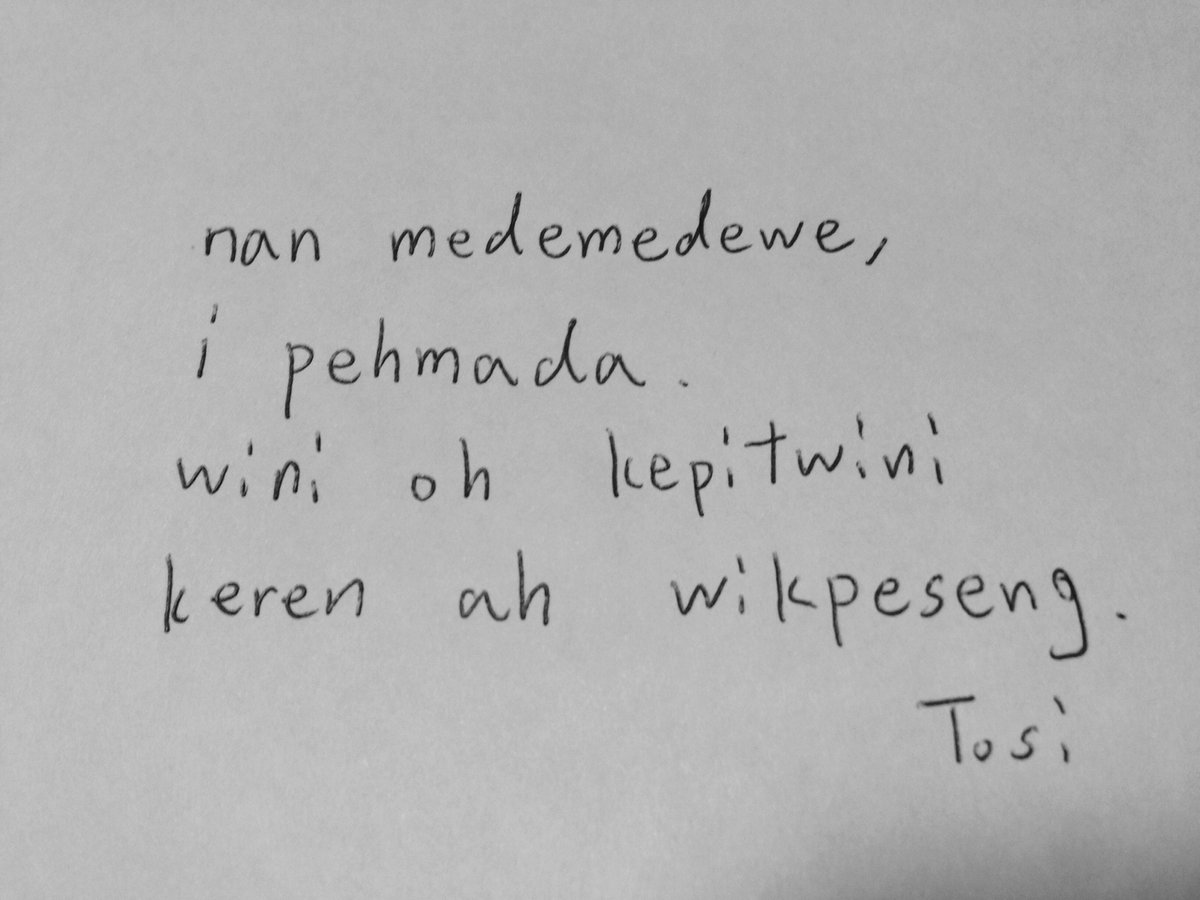 nan medemedewe,
i pehmada.
wini oh kepitwini
keren ah wikpeseng.
Tosi